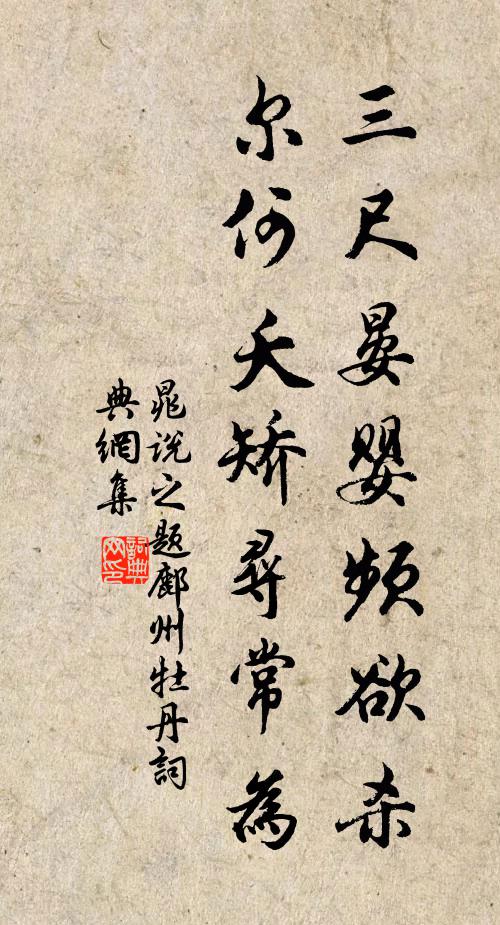 三尺晏婴频欲杀
尔何夭矫寻常為
晁说之题鄜州牡丹詞
典網集
詞典
网印